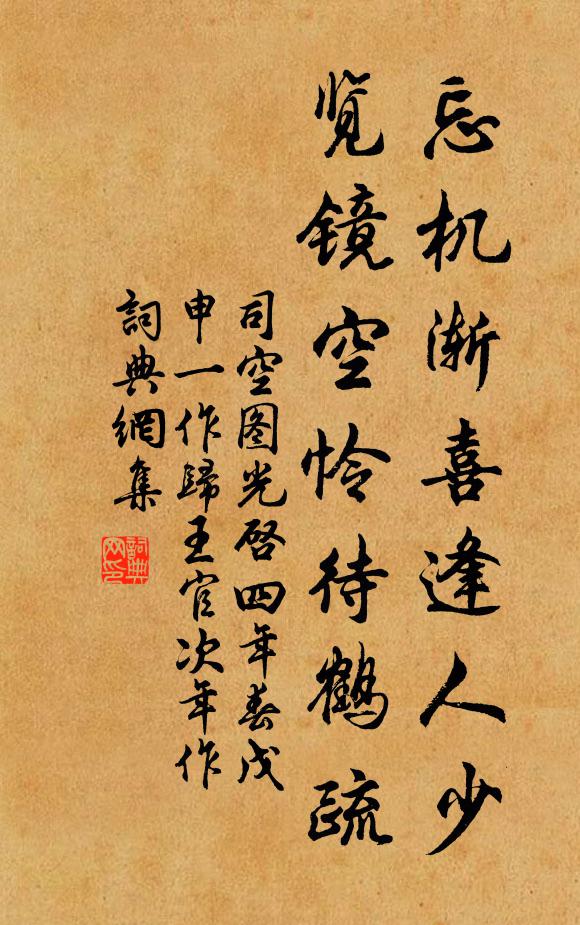 忘机渐喜逢人少
览镜空怜待鹤疏
司空图光启四年春戊
申一作歸王官次年作
詞典網集
詞典
网印